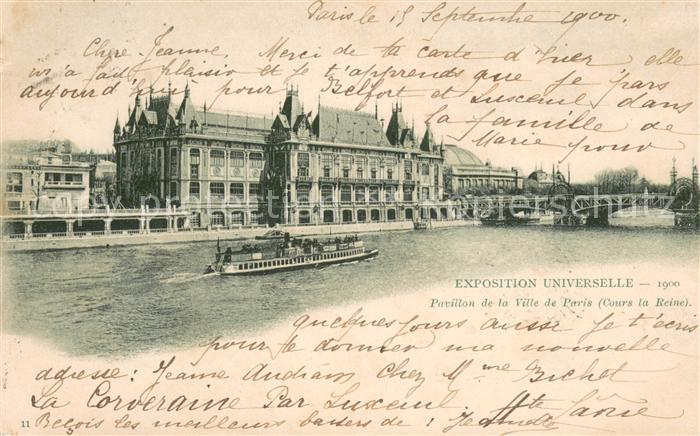 Paris le 15 Septembre 1900.
Chere Jeanne, Merci de ta carte d'hier, elle
m'a fait plaisir et je t'apprends que je pars
aujourd'hui pour Belfort et Luxeuil dans
la famille de
Marie pour
EXPOSITION UNIVERSELLE — 1900
Pavillon de la Ville de Paris (Cours la Reine).
quelques jours aussi je t'écris
pour te donner ma nouvelle
adresse: Jeanne chez Mme Bichet
La Corveraine Par Luxeuil Hte Saône
11 Reçois les meilleurs baisers de: Jeannette